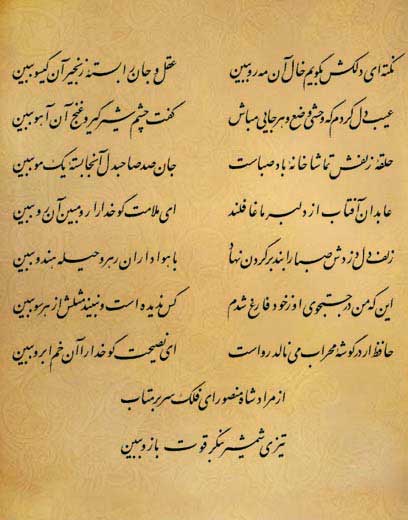 نکته ای دلکش بگویم خال آن مه رو ببین عقل و جان را بسته زنجیر آن گیسو ببین
عیب دل کردم که وحشی وضع و هرجایی مباش گفت چشم شیرگیر و غنج آن آهو ببین
حلقه زلفش تماشاخانه باد صباست جان صد صاحبدل آنجا بسته یک مو ببین
عابدان آفتاب از دلبر ما غافلند ای ملامت گو خدا را رو مبین آن رو ببین
زلف دل دزدش صبا را بند بر گردن نهاد با هواداران رهرو حیله هندو ببین
این که من در جستجوی او ز خود فارغ شدم کس ندیده است و نبیند مثلش از هر سو ببین
حافظ ار در گوشه محراب می نالد رواست ای نصیحت گو خدا را آن خم ابرو ببین
از مراد شاه منصور ای فلک سر برمتاب
تیزی شمشیر بنگر قوت بازو ببین